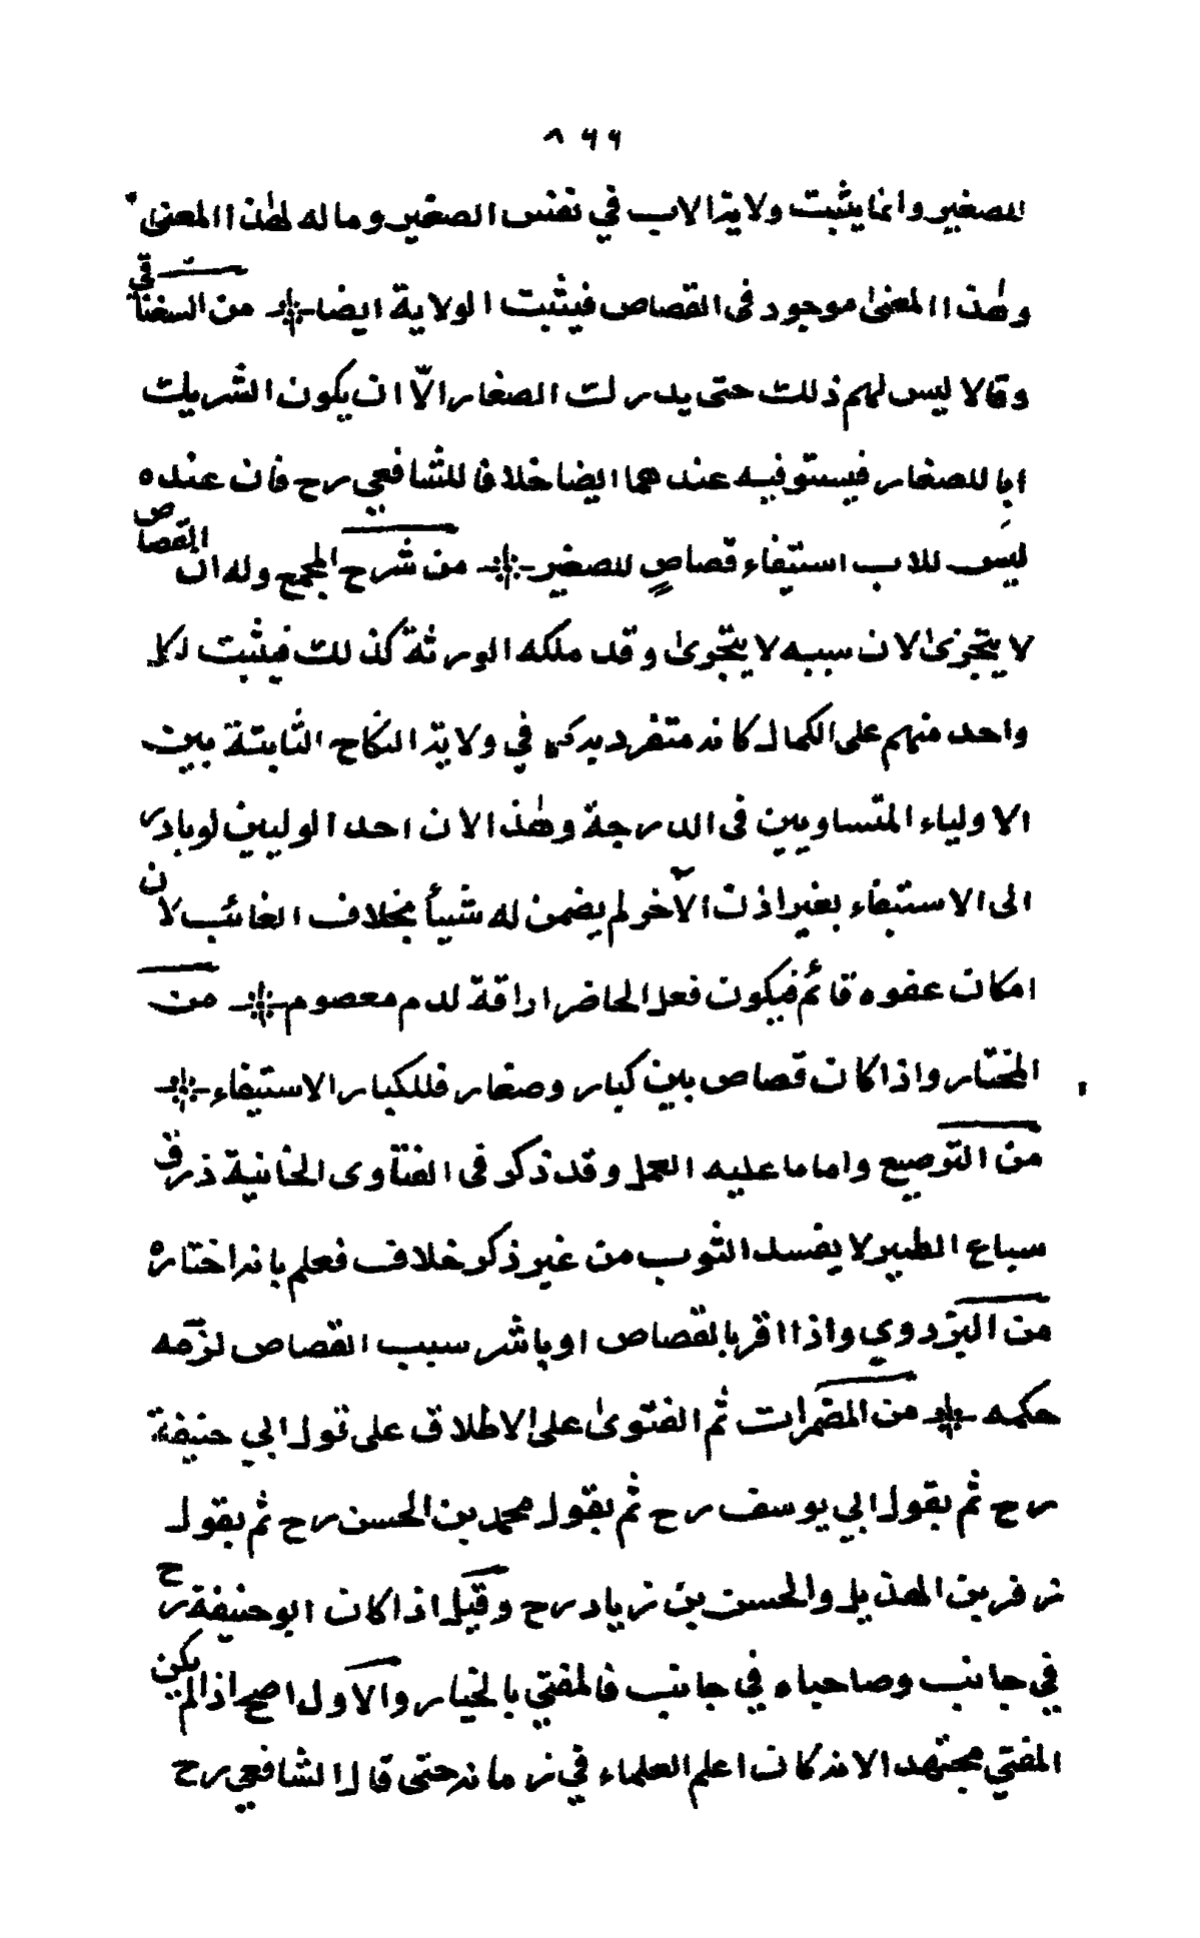 ٨٦٦
للصغير وانما يثبت ولاية الاب في نفس الصغير وماله لهٰذا المعنىٰ
وهٰذا المعنىٰ موجود فى القصاص فيثبت الولاية ايضا من السغناقي
وقالا ليس لهم ذلك حتى يدرك الصغار الّا ان يكون الشريك
ابا للصغار فيستوفيه عندهما ايضا خلافا للشافعي رح فان عنده
ليس للاب استيفاء قصاص للصغير من شرح المجمع وله ان القصاص
لا يتجزىٰ لان سببه لا يتجزىٰ وقد ملكه الورثة كذلك فيثبت لكل
واحد منهم على الكمال كانه متفرد به كما في ولاية النكاح الثابتة بين
الاولياء المتساويين فى الدرجة وهٰذا لان احد الوليين لو بادر
الى الاستيفاء بغير اذن الآخر لم يضمن له شيأ بخلاف الغائب لان
امكان عفوه قائم فيكون فعل الحاضر اراقة لدم معصوم من
المختار واذا كان قصاص بين كبار وصغار فللكبار الاستيفاء
من التوصيع واما ما عليه العمل وقد ذكر فى الفتاوى الخانية ذرق
سباع الطير لا يفسد الثوب من غير ذكر خلاف فعلم بانه اختاره
من البزدوي واذا اقر بالقصاص او باشر سبب القصاص لزمه
حكمه من المضمرات ثم الفتوىٰ على الاطلاق على قول ابي حنيفة
رح ثم بقول ابي يوسف رح ثم بقول محمد بن الحسن رح ثم بقول
زفر بن الهذيل والحسن بن زياد رح وقيل اذا كان ابو حنيفة رح
في جانب وصاحباه في جانب فالمفتي بالخيار والاول اصح اذا لم يكن
المفتي مجتهدا لانه كان اعلم العلماء في زمانه حتى قال الشافعي رح